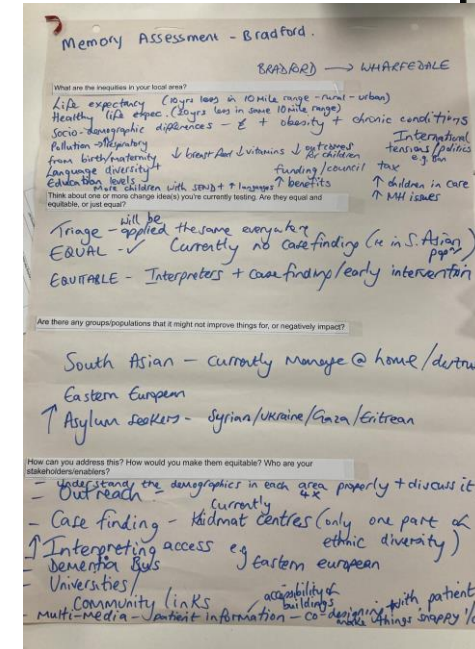 Memory Assessment - Bradford.
BRADFORD → WHARFEDALE
What are the inequities in your local area?
Life expectancy (10yrs less in 10 mile range - rural - urban)
Healthy life expec. (20yrs less in same 10 mile range)
Socio-demographic differences - £ + obesity + chronic conditions
Pollution → respiratory
International
tensions/politics
e.g.
from birth/maternity ↓ breast feed ↓ vitamins ↓ outcomes for children
Language diversity ↑
funding/council tax
Education levels ↓
↑ benefits
↑ children in care
More children with SEND + ↑ languages
↑ MH issues
Think about one or more change idea(s) you're currently testing. Are they equal and
equitable, or just equal?
Triage - will be applied the same everywhere
EQUAL - ✓ Currently no case finding (ie in S. Asian
EQUITABLE - Interpreters + case finding/early intervention
Are there any groups/populations that it might not improve things for, or negatively impact?
South Asian - currently manage @ home/
Eastern European
↑ Asylum seekers - Syrian/Ukraine/Gaza/Eritrean
How can you address this? How would you make them equitable? Who are your
stakeholders/enablers?
- Understand the demographics in each area properly + discuss it
- Outreach
- Case finding - currently 4x Khidmat centres (only one part of
ethnic diversity)
↑ Interpreting access eg Eastern european
- Dementia Bus
- Universities/
Community links
accessibility of
buildings
- Multi-media - patient information - co-designing with patient
make things snappy